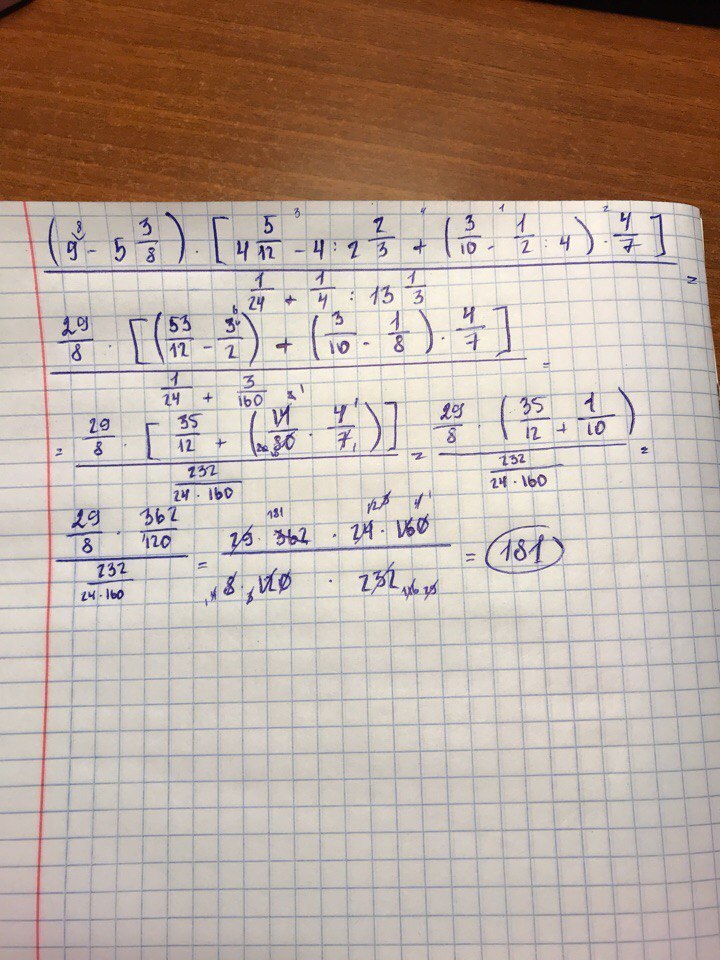 (9 - 5 3/8) · [4 5/12 - 4 : 2 2/3 + (3/10 - 1/2 : 4) · 4/7]
1/24 + 1/4 : 13 1/3 =
29/8 · [(53/12 - 3/2) + (3/10 - 1/8) · 4/7]
1/24 + 3/160 =
= 29/8 · [35/12 + (14/80 · 4/7)] = 29/8 · (35/12 + 1/10) =
232/24·160 232/24·160
29/8 · 362/120 = 29 · 362 · 24 · 160 = 181
232/24·160 8 · 120 · 232